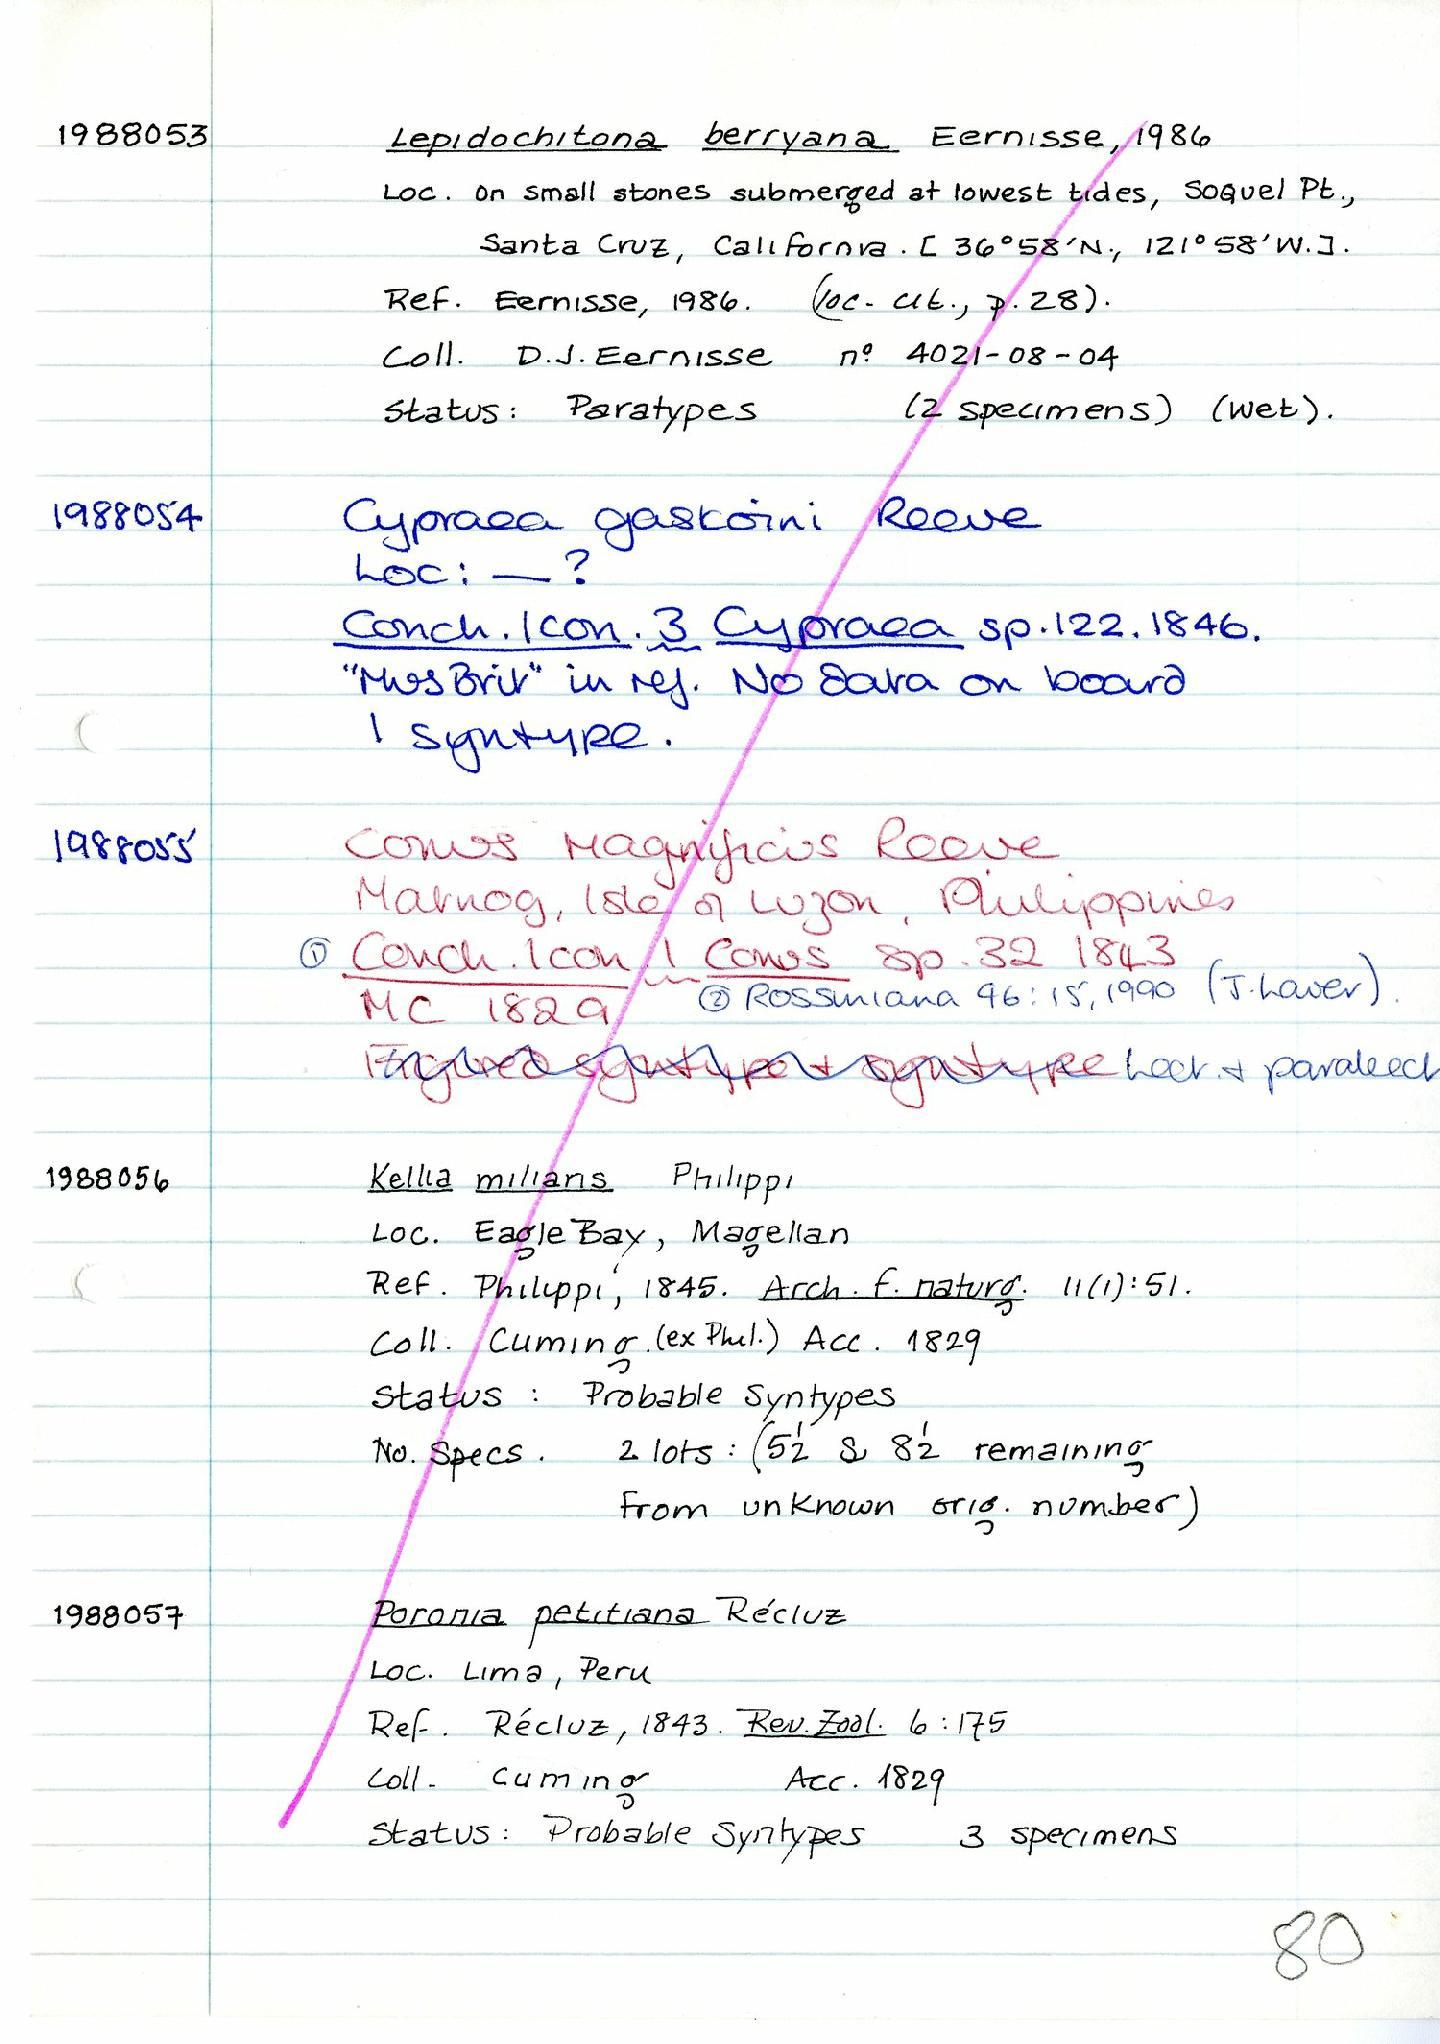 1988053 Lepidochitona berryana Eernisse, 1986
Loc. on small stones submerged at lowest tides, Soquel Pt.,
Santa Cruz, California. [36°58'N., 121°58'W.].
Ref. Eernisse, 1986. (loc. cit., p.28).
Coll. D.J. Eernisse nº 4021-08-04
Status: Paratypes (2 specimens) (wet).
1988054 Cypraea gaskoini Reeve
Loc: — ?
Conch. Icon. 3 Cypraea sp.122. 1846.
"Mus Brit" in ref. No data on board
1 syntype.
1988055 Conus magnificus Reeve
Matnog, Isle of Luzon, Philippines
① Conch. Icon 1 Conus sp. 32 1843
MC 1829 ② Rossiniana 46:15, 1990 (J. Laver).
Figured syntype + syntype Lect. + paralect
1988056 Kellia milians Philippi
Loc. Eagle Bay, Magellan
Ref. Philippi, 1845. Arch. f. naturg. 11(1):51.
Coll. Cuming (ex Phil.) Acc. 1829
Status: Probable Syntypes
No. Specs. 2 lots: (5½ & 8½ remaining
from unknown orig. number)
1988057 Poronia petitiana Récluz
Loc. Lima, Peru
Ref. Récluz, 1843. Rev. Zool. 6:175
Coll. Cuming Acc. 1829
Status: Probable Syntypes 3 specimens
80